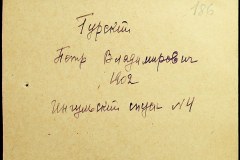 186
Гурский
Петр Владимирович
1902
Ингульский спуск №4